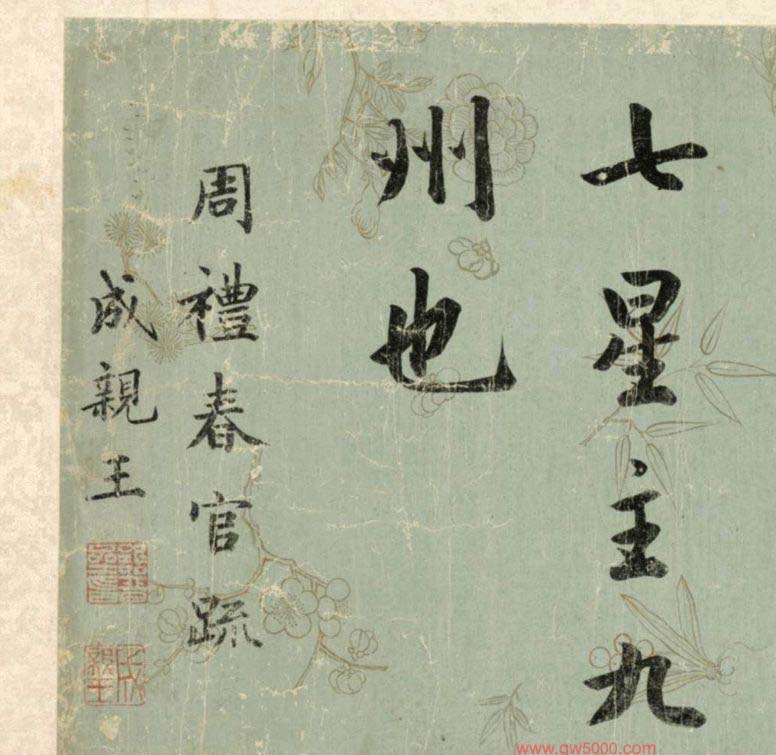 七星主九
州也
周禮春官疏
成親王
成親王
www.gw5000.com